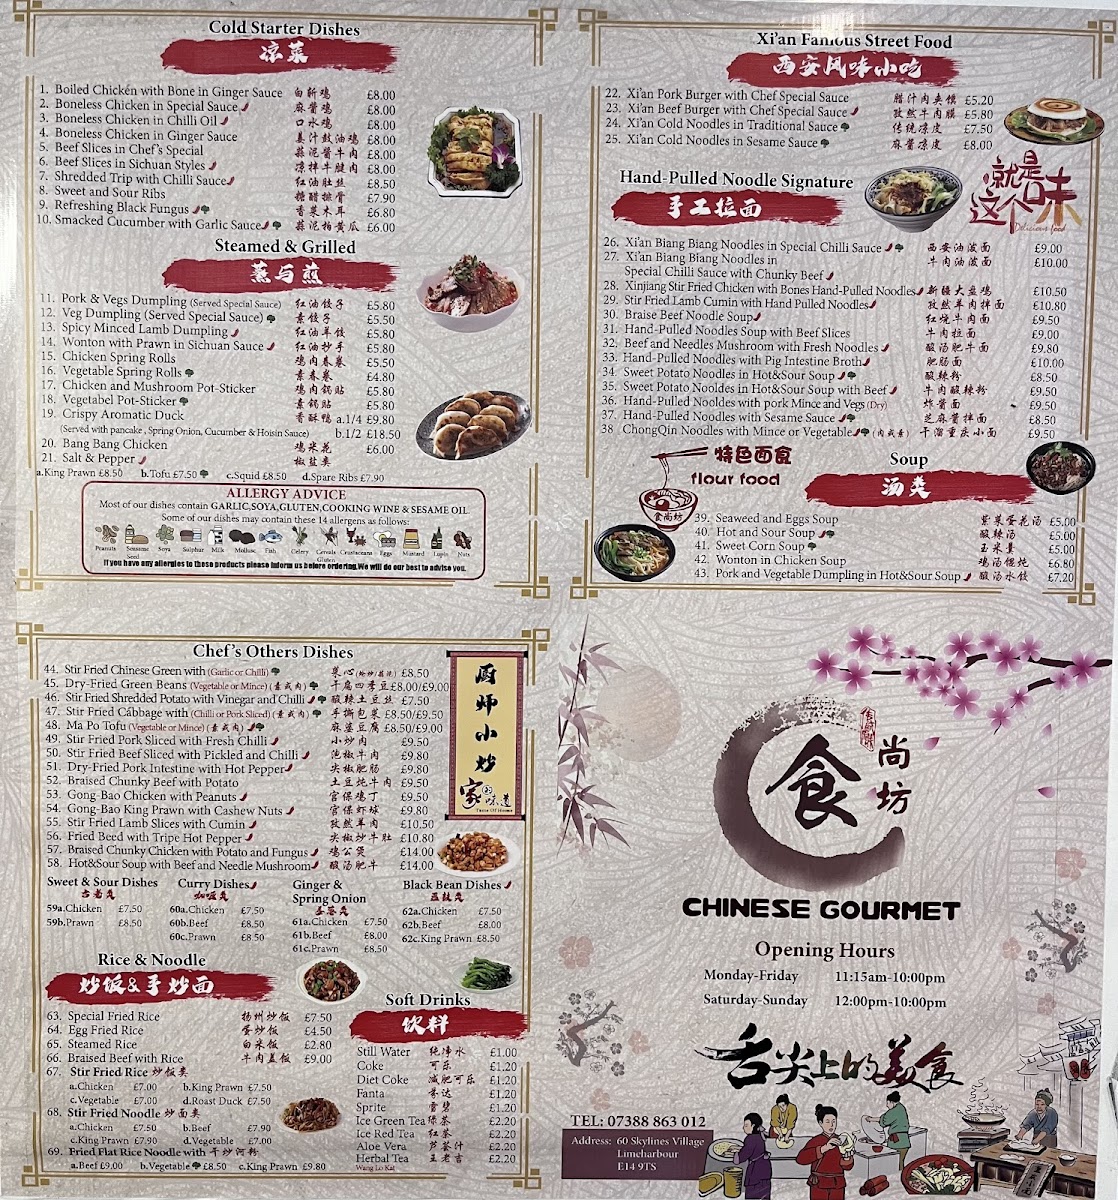 Cold Starter Dishes
凉菜
1. Boiled Chicken with Bone in Ginger Sauce 白斩鸡 £8.00
2. Boneless Chicken in Special Sauce 麻酱鸡 £8.00
3. Boneless Chicken in Chilli Oil 口水鸡 £8.00
4. Boneless Chicken in Ginger Sauce 姜汁豉油鸡 £8.00
5. Beef Slices in Chef's Special 蒜泥酱牛肉 £8.00
6. Beef Slices in Sichuan Styles 凉拌牛腱肉 £8.00
7. Shredded Trip with Chilli Sauce 红油肚丝 £8.50
8. Sweet and Sour Ribs 糖醋排骨 £7.90
9. Refreshing Black Fungus 香菜木耳 £6.80
10. Smacked Cucumber with Garlic Sauce 蒜泥拍黄瓜 £6.00
Steamed & Grilled
蒸与煎
11. Pork & Vegs Dumpling (Served Special Sauce) 红油饺子 £5.80
12. Veg Dumpling (Served Special Sauce) 素饺子 £5.50
13. Spicy Minced Lamb Dumpling 红油羊饺 £5.80
14. Wonton with Prawn in Sichuan Sauce 红油抄手 £5.80
15. Chicken Spring Rolls 鸡肉春卷 £5.50
16. Vegetable Spring Rolls 素春卷 £4.80
17. Chicken and Mushroom Pot-Sticker 鸡肉锅贴 £5.80
18. Vegetabel Pot-Sticker 素锅贴 £5.80
19. Crispy Aromatic Duck 香酥鸭 a.1/4 £9.80
(Served with pancake , Spring Onion, Cucumber & Hoisin Sauce) b.1/2 £18.50
20. Bang Bang Chicken 鸡米花 £6.00
21. Salt & Pepper 椒盐类
a.King Prawn £8.50 b.Tofu £7.50 c.Squid £8.50 d.Spare Ribs £7.90
ALLERGY ADVICE
Most of our dishes contain GARLIC,SOYA,GLUTEN,COOKING WINE & SESAME OIL
Some of our dishes may contain these 14 allergens as follows:
Peanuts Seasame Seed Soya Sulphur Milk Mollusc Fish Celery Cereals Gluten Crustaceans Eggs Mustard Lupin Nuts
If you have any allergies to these products please inform us before ordering.We will do our best to advise you.
Xi'an Famous Street Food
西安风味小吃
22. Xi'an Pork Burger with Chef Special Sauce 腊汁肉夹馍 £5.20
23. Xi'an Beef Burger with Chef Special Sauce 孜然牛肉馍 £5.80
24. Xi'an Cold Noodles in Traditional Sauce 传统凉皮 £7.50
25. Xi'an Cold Noodles in Sesame Sauce 麻酱凉皮 £8.00
Hand-Pulled Noodle Signature
手工拉面
就是这个味
Delicious food
26. Xi'an Biang Biang Noodles in Special Chilli Sauce 西安油泼面 £9.00
27. Xi'an Biang Biang Noodles in 牛肉油泼面 £10.00
Special Chilli Sauce with Chunky Beef
28. Xinjiang Stir Fried Chicken with Bones Hand-Pulled Noodles 新疆大盘鸡 £10.50
29. Stir Fried Lamb Cumin with Hand Pulled Noodles 孜然羊肉拌面 £10.80
30. Braise Beef Noodle Soup 红烧牛肉面 £9.50
31. Hand-Pulled Noodles Soup with Beef Slices 牛肉拉面 £9.00
32. Beef and Needles Mushroom with Fresh Noodles 酸汤肥牛面 £9.80
33. Hand-Pulled Noodles with Pig Intestine Broth 肥肠面 £10.00
34 Sweet Potato Noodles in Hot&Sour Soup 酸辣粉 £8.50
35. Sweet Potato Nooldes in Hot&Sour Soup with Beef 牛肉酸辣粉 £9.50
36. Hand-Pulled Nooldes with pork Mince and Vegs (Dry) 炸酱面 £9.50
37. Hand-Pulled Noodles with Sesame Sauce 芝麻酱拌面 £8.50
38 ChongQin Noodles with Mince or Vegetable (肉或素) 干溜重庆小面 £9.50
特色面食
flour food
食尚坊
Soup
汤类
39. Seaweed and Eggs Soup 紫菜蛋花汤 £5.00
40. Hot and Sour Soup 酸辣汤 £5.00
41. Sweet Corn Soup 玉米羹 £5.00
42. Wonton in Chicken Soup 鸡汤馄炖 £6.80
43. Pork and Vegetable Dumpling in Hot&Sour Soup 酸汤水饺 £7.20
Chef's Others Dishes
44. Stir Fried Chinese Green with (Garlic or Chilli) £8.50
45. Dry-Fried Green Beans (Vegetable or Mince) (素或肉) 干腐四季豆 £8.00/£9.00
46. Stir Fried Shredded Potato with Vinegar and Chilli 酸辣土豆丝 £7.50
47. Stir Fried Cabbage with (Chilli or Pork Sliced) (素或肉) 手撕包菜 £8.50/£9.50
48. Ma Po Tofu (Vegetable or Mince) (素或肉) 麻婆豆腐 £8.50/£9.00
49. Stir Fried Pork Sliced with Fresh Chilli 小炒肉 £9.50
50. Stir Fried Beef Sliced with Pickled and Chilli 泡椒牛肉 £9.80
51. Dry-Fried Pork Intestine with Hot Pepper 尖椒肥肠 £9.80
52. Braised Chunky Beef with Potato 土豆炖牛肉 £9.50
53. Gong-Bao Chicken with Peanuts 宫保鸡丁 £9.50
54. Gong-Bao King Prawn with Cashew Nuts 宫保虾球 £9.80
55. Stir Fried Lamb Slices with Cumin 孜然羊肉 £10.50
56. Fried Beed with Tripe Hot Pepper 尖椒炒牛肚 £10.80
57. Braised Chunky Chicken with Potato and Fungus 鸡公煲 £14.00
58. Hot&Sour Soup with Beef and Needle Mushroom 酸汤肥牛 £14.00
厨师小炒
家的味道
Taste Of Home
Sweet & Sour Dishes
古老类
59a.Chicken £7.50
59b.Prawn £8.50
Curry Dishes
咖喱类
60a.Chicken £7.50
60b.Beef £8.50
60c.Prawn £8.50
Ginger &
Spring Onion
姜葱类
61a.Chicken £7.50
61b.Beef £8.00
61c.Prawn £8.50
Black Bean Dishes
豆豉类
62a.Chicken £7.50
62b.Beef £8.00
62c.King Prawn £8.50
Rice & Noodle
炒饭&手炒面
63. Special Fried Rice 扬州炒饭 £7.50
64. Egg Fried Rice 蛋炒饭 £4.50
65. Steamed Rice 白米饭 £2.80
66. Braised Beef with Rice 牛肉盖饭 £9.00
67. Stir Fried Rice 炒饭类
a.Chicken £7.00 b.King Prawn £7.50
c.Vegetable £7.00 d.Roast Duck £7.50
68. Stir Fried Noodle 炒面类
a.Chicken £7.50 b.Beef £7.90
c.King Prawn £7.90 d.Vegetable £7.00
69. Fried Flat Rice Noodle with 干炒河粉
a.Beef £9.00 b.Vegetable £8.50 c.King Prawn £9.80
Soft Drinks
饮料
Still Water 纯净水 £1.00
Coke 可乐 £1.20
Diet Coke 减肥可乐 £1.20
Fanta 芬达 £1.20
Sprite 雪碧 £1.20
Ice Green Tea 绿茶 £2.20
Ice Red Tea 红茶 £2.20
Aloe Vera 芦荟汁 £2.20
Herbal Tea 王老吉 £2.20
Wang Lo Kat
食尚坊
CHINESE GOURMET
Opening Hours
Monday-Friday 11:15am-10:00pm
Saturday-Sunday 12:00pm-10:00pm
舌尖上的美食
TEL: 07388 863 012
Address: 60 Skylines Village
Limeharbour
E14 9TS